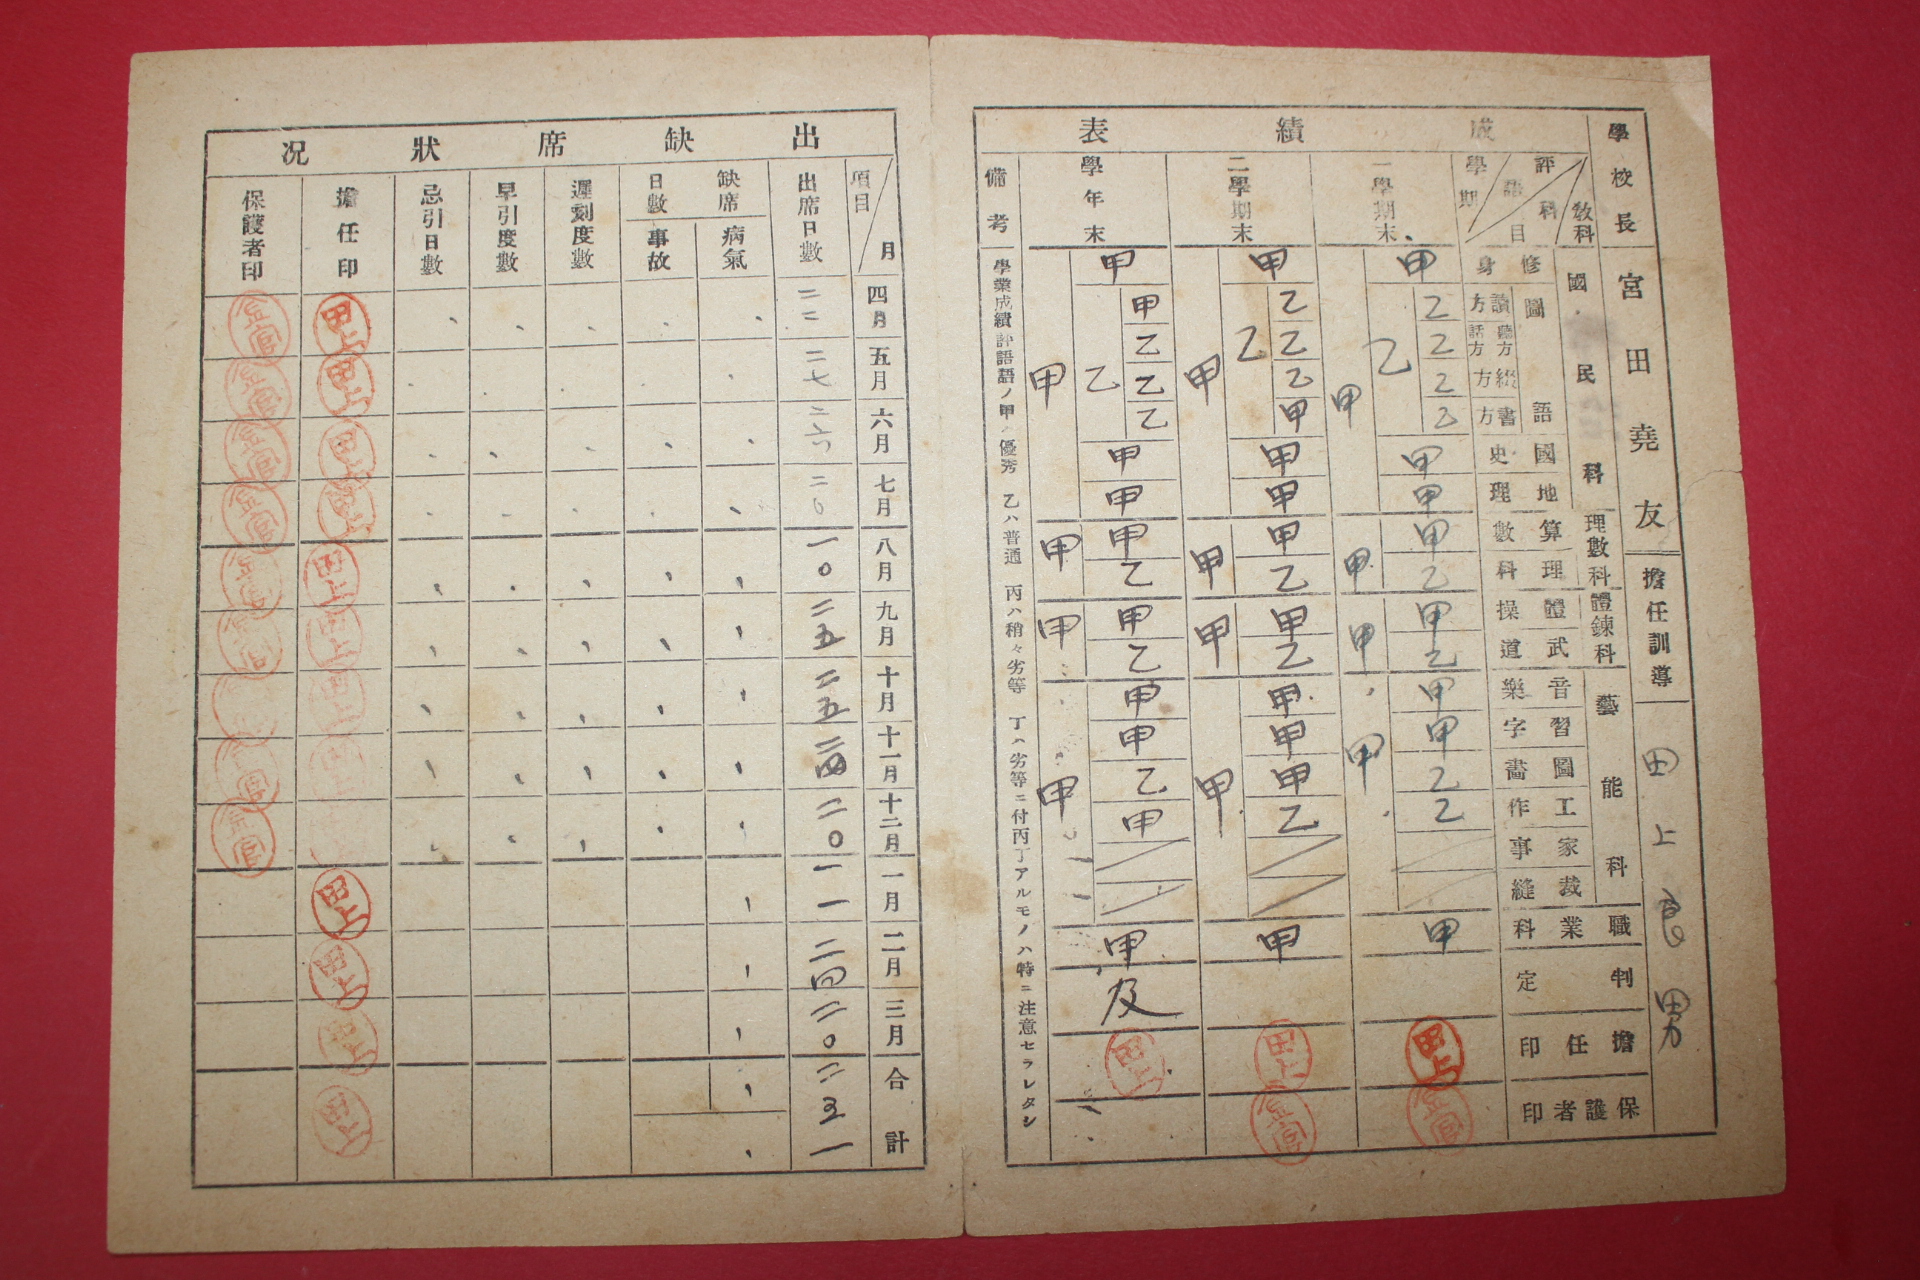 學校長 宮田堯友 擔任訓導 田上良男
成績表
教科 科目 評語 學期
國民科 理數科 體鍊科 藝能科 職業科 判定 擔任印 保護者印
修身 國語 讀方 聽方話方 綴方 書方 國史 地理 算數 理科 體操 武道 音樂 習字 圖畫 工作 家事 裁縫
一學期末 甲 乙 乙 乙 乙 乙 甲 甲 甲 甲 乙 甲 甲 乙 甲 甲 甲 乙 乙 甲 甲 田上
二學期末 甲 乙 乙 乙 甲 乙 甲 甲 甲 甲 乙 甲 甲 乙 甲 甲 甲 甲 乙 甲 甲 田上
學年末 甲 甲 乙 乙 乙 乙 甲 甲 甲 甲 乙 甲 甲 乙 甲 甲 甲 乙 甲 甲 甲 及 田上
備考 學業成績評語ノ甲ハ優秀 乙ハ普通 丙ハ稍々劣等 丁ハ劣等ニ付丙丁アルモノハ特ニ注意セラレタシ
出缺席狀況
項目 月 四月 五月 六月 七月 八月 九月 十月 十一月 十二月 一月 二月 三月 合計
出席日數 二二 二七 二六 二〇 一〇 二五 二五 二四 二〇 一一 二四 二〇 二三一
缺席日數 病氣 事故
遲刻度數
早引度數
忌引日數
擔任印 田上 田上 田上 田上 田上 田上 田上 田上 田上 田上 田上 田上
保護者印